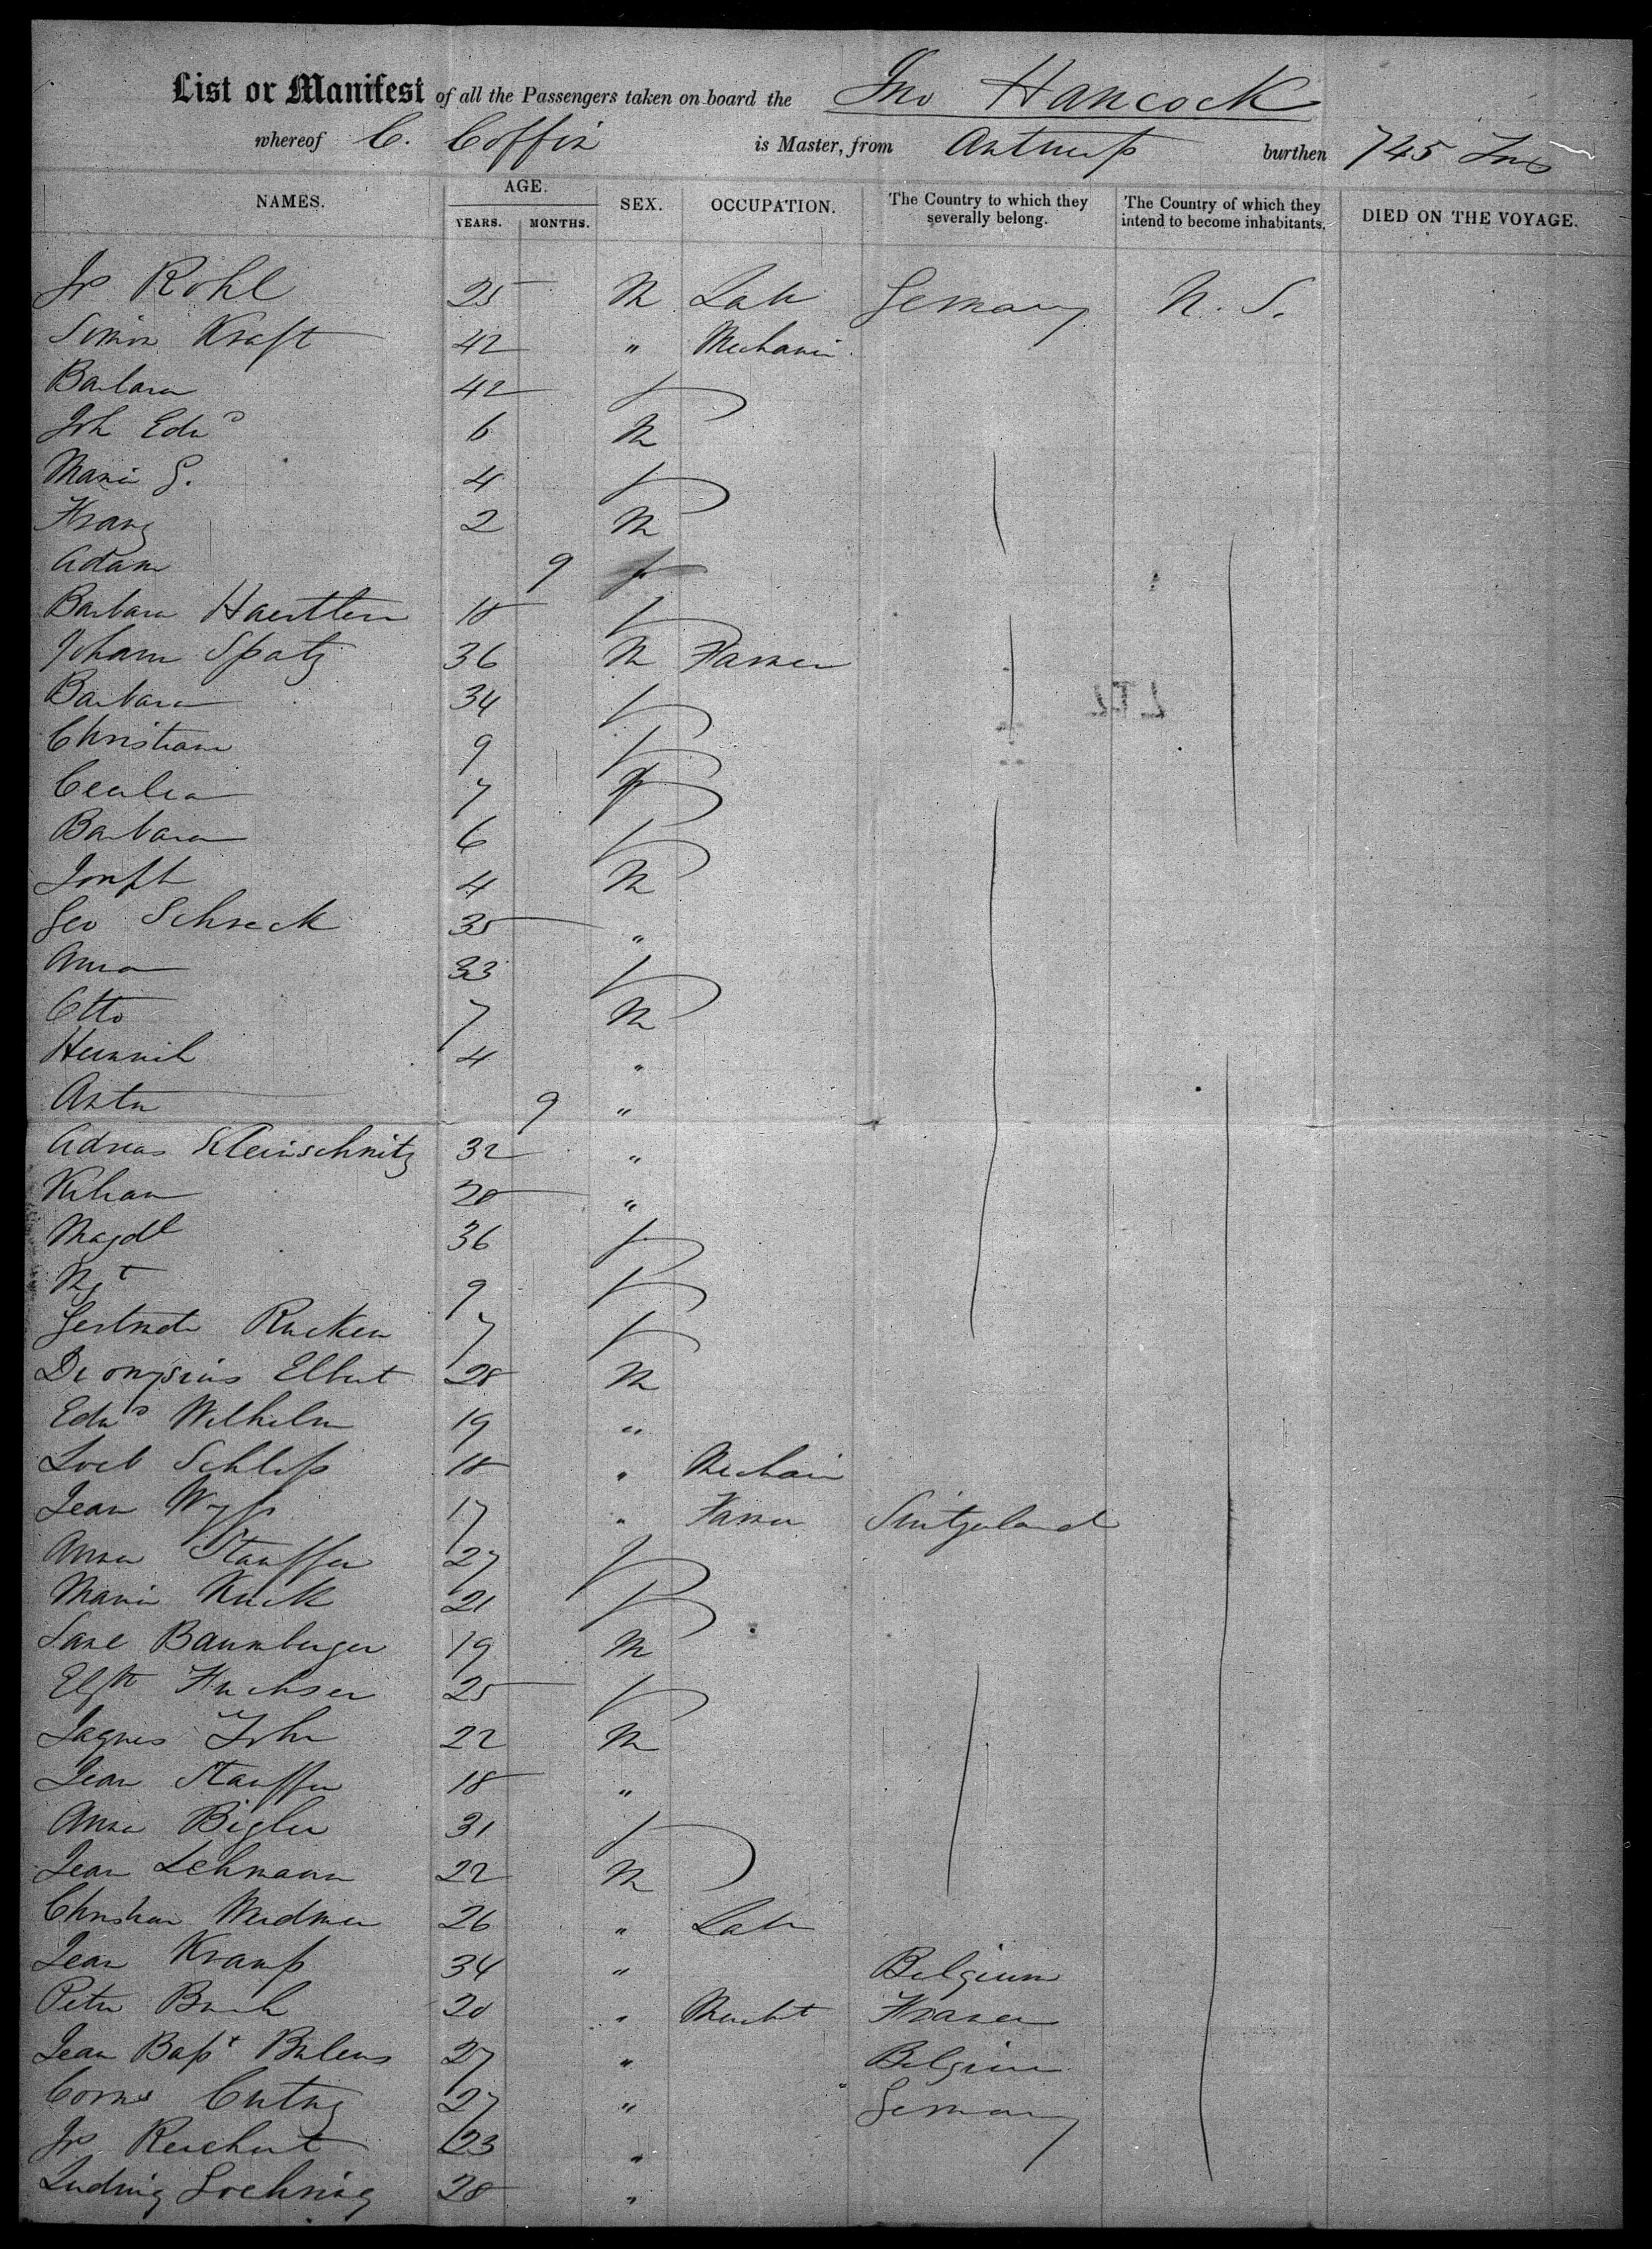 List or Manifest of all the Passengers taken on board the Jno Hancock
whereof C. Coffin is Master, from Antwerp burthen 745 Tns
NAMES. AGE. SEX. OCCUPATION. The Country to which they severally belong. The Country of which they intend to become inhabitants. DIED ON THE VOYAGE.
YEARS. MONTHS.
Js Rohl 25 M Lab Germany U. S.
Simon Kraft 42 " Mechanic
Barbara 42 f
Joh Edwd 6 M
Maria G. 4 f
Franz 2 M
Adam 9
Barbara Haertlein 18 f
Johann Spatz 36 M Farmer
Barbara 34 f
Christiane 9 f
Cecilia 7 f
Barbara 6 f
Joseph 4 M
Geo Schreck 35 "
Anna 33 f
Otto 7 M
Heinrich 4 "
Anton 9 "
Adreas Kleinschnitz 32 "
Kilian 28 "
Magdl 36 f
Mgt 9 f
Gertrude Rucken 7 f
Dionysius Elbert 28 M
Edwd Wilhelm 19 "
Loeb Schloss 18 " Mechanic
Jean Wyss 17 " Farmer Switzerland
Anna Stauffer 27 f
Maria Kuck 21 f
Baumberger 19 M
Elsth Fuchser 25 f
Jaques John 22 M
Jean Stauffer 18 "
Anna Bigler 31 f
Jean Lehmann 22 M
Christian Weidmer 26 " Lab
Jean Kramp 34 " Belgium
Peter 20 " Mercht France
Jean Bapt Bulens 27 " Belgium
Corns 27 " Germany
Js Reichert 23 "
Ludwig Loehning 28 "